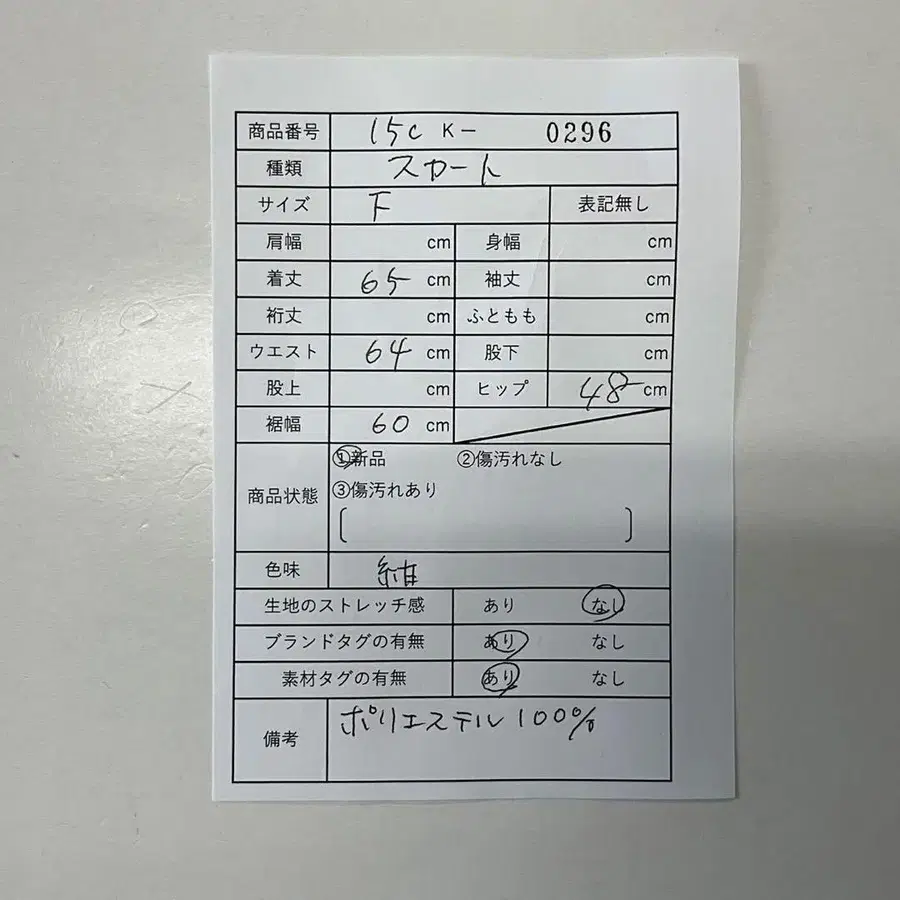 商品番号 15C K- 0296
種類 スカート
サイズ F 表記無し
肩幅 cm 身幅 cm
着丈 65 cm 袖丈 cm
裄丈 cm ふともも cm
ウエスト 64 cm 股下 cm
股上 cm ヒップ 48 cm
裾幅 60 cm
①新品 ②傷汚れなし
商品状態 ③傷汚れあり
色味 紺
生地のストレッチ感 あり なし
ブランドタグの有無 あり なし
素材タグの有無 あり なし
備考 ポリエステル100%